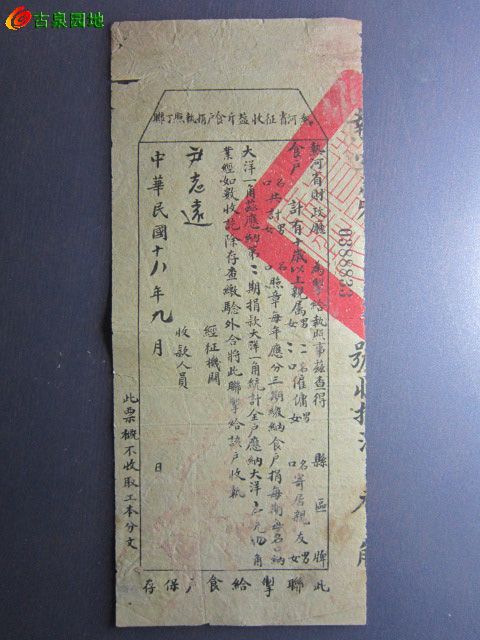 古泉园地
熱河省征收鹽斤食戶捐執照丁聯
熱河省財政廳 為掣給執照事茲查得 縣 區 牌
食戶 計有十歲以上親屬男 二名 女 二口 僱傭男 名 女 口 寄居親友男 女
名共計男 名 口 女 口 照章每年應分三期繳納食戶捐每期每名口納
大洋一角茲應納第二期捐款大洋一角統計全戶應納大洋 元四角
業經如數收訖除存查繳驗外合將此聯掣給該戶收執
尹志遠
經征機關
收款人員
中華民國十八年九月 日
此票概不收取工本分文
此聯掣給食戶保存
0388833
號收捐洋 元 角